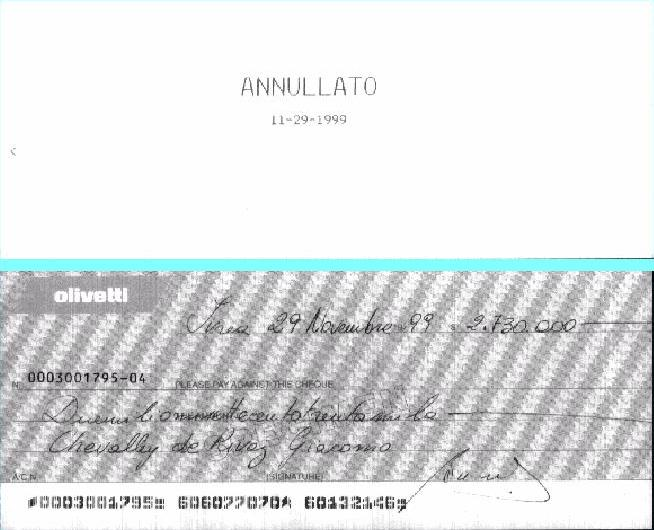 ANNULLATO
11-29-1999
olivetti
Ivrea 29 Novembre 99 2.730.000
N. 0003001795-04 PLEASE PAY AGAINST THIS CHEQUE
Duemilionisettecentotrentamila
Chevally de Rivaz Giacomo
A.C.N. (SIGNATURE)
0003001795 606077070 60132146